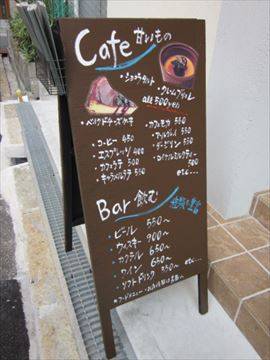 Cafe 甘いもの
・ショコラタルト
・クレームブリュレ
all 500yen
・ベイクドチーズケーキ
・コーヒー 450
・エスプレッソ 400
・カフェラテ 550
・キャラメルラテ 550
・カフェモカ 550
・アールグレイ 550
・ダージリン 550
・ロイヤルミルクティー
700
etc...
Bar 飲む
ビール 550〜
ウィスキー 900〜
カクテル 650〜
ワイン 650〜
ソフトドリンク 350〜 etc...